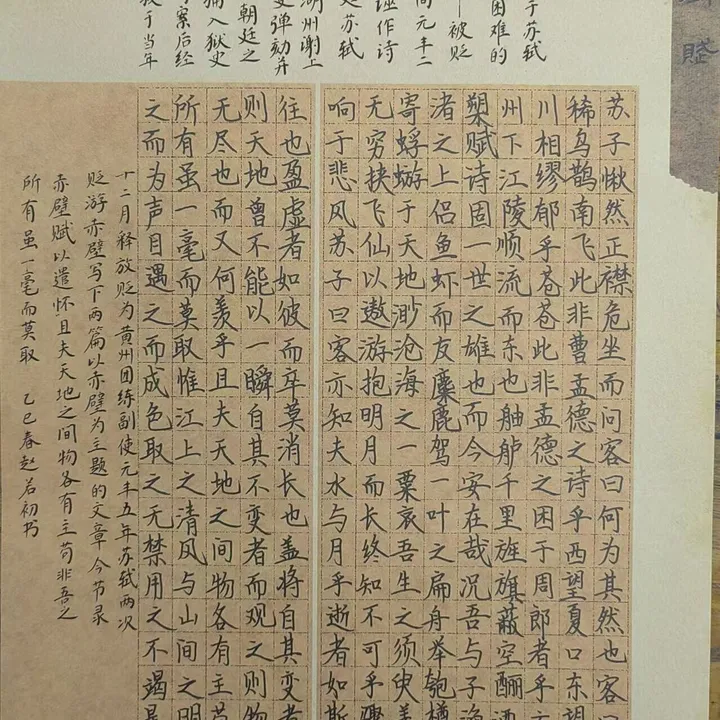 賦
于苏轼
困难的
被贬
间元丰二
诬作诗
苏轼
湖州谢上
弹劾并
朝廷之
捕入狱史
案后经
于当年
苏子愀然正襟危坐而问客曰何为其然也客
稀乌鹊南飞此非曹孟德之诗乎西望夏口东望
川相缪郁乎苍苍此非孟德之困于周郎者乎
州下江陵顺流而东也舳舻千里旌旗蔽空酾酒
槊赋诗固一世之雄也而今安在哉况吾与子渔
渚之上侣鱼虾而友麋鹿驾一叶之扁舟举匏樽
寄蜉蝣于天地渺沧海之一粟哀吾生之须臾羡
无穷挟飞仙以遨游抱明月而长终知不可乎骤
响于悲风苏子曰客亦知夫水与月乎逝者如斯
往也盈虚者如彼而卒莫消长也盖将自其变者
则天地曾不能以一瞬自其不变者而观之则物
无尽也而又何羡乎且夫天地之间物各有主苟
所有虽一毫而莫取惟江上之清风与山间之明
之而为声目遇之而成色取之无禁用之不竭是
十二月释放贬为黄州团练副使元丰五年苏轼两次
贬游赤壁写下两篇以赤壁为主题的文章今节录
赤壁赋以遣怀且夫天地之间物各有主苟非吾之
所有虽一毫而莫取 乙巳春赵若初书